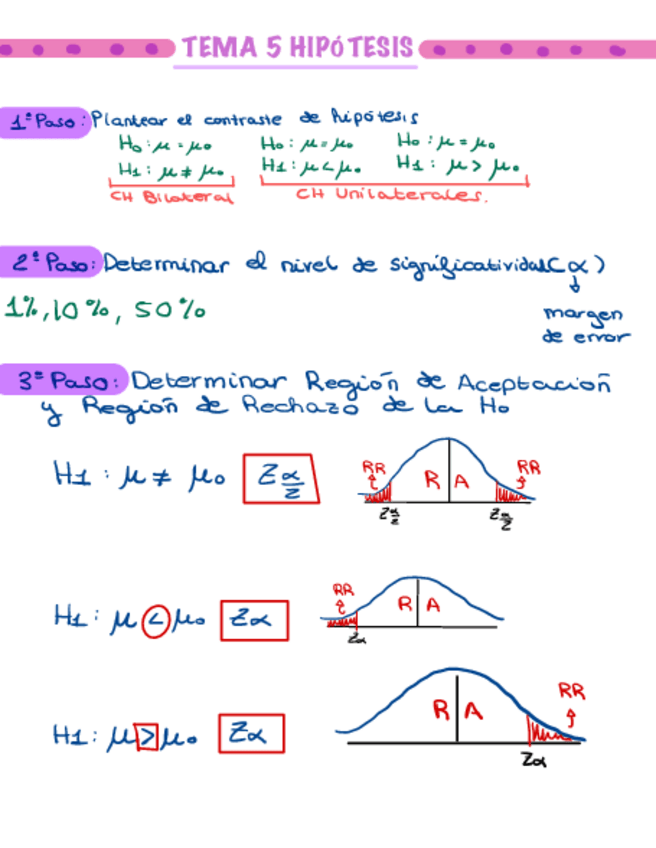 TEMA 5 HIPÓTESIS
1º Paso: Plantear el contraste de hipótesis
H₀: μ = μ₀ H₀: μ = μ₀ H₀: μ = μ₀
H1: μ ≠ μ₀ H1: μ < μ₀ H1: μ > μ₀
CH Bilateral CH Unilaterales.
2º Paso: Determinar el nivel de significatividad (α)
↓
1%, 10%, 50%
margen
de error
3º Paso: Determinar Región de Aceptación
y Región de Rechazo de la H₀
H1: μ ≠ μ₀ Zα/2
RR R A RR
Zα/2 Zα/2
H1: μ < μ₀ Zα
RR R A
Zα
H1: μ > μ₀ Zα
R A RR
Zα